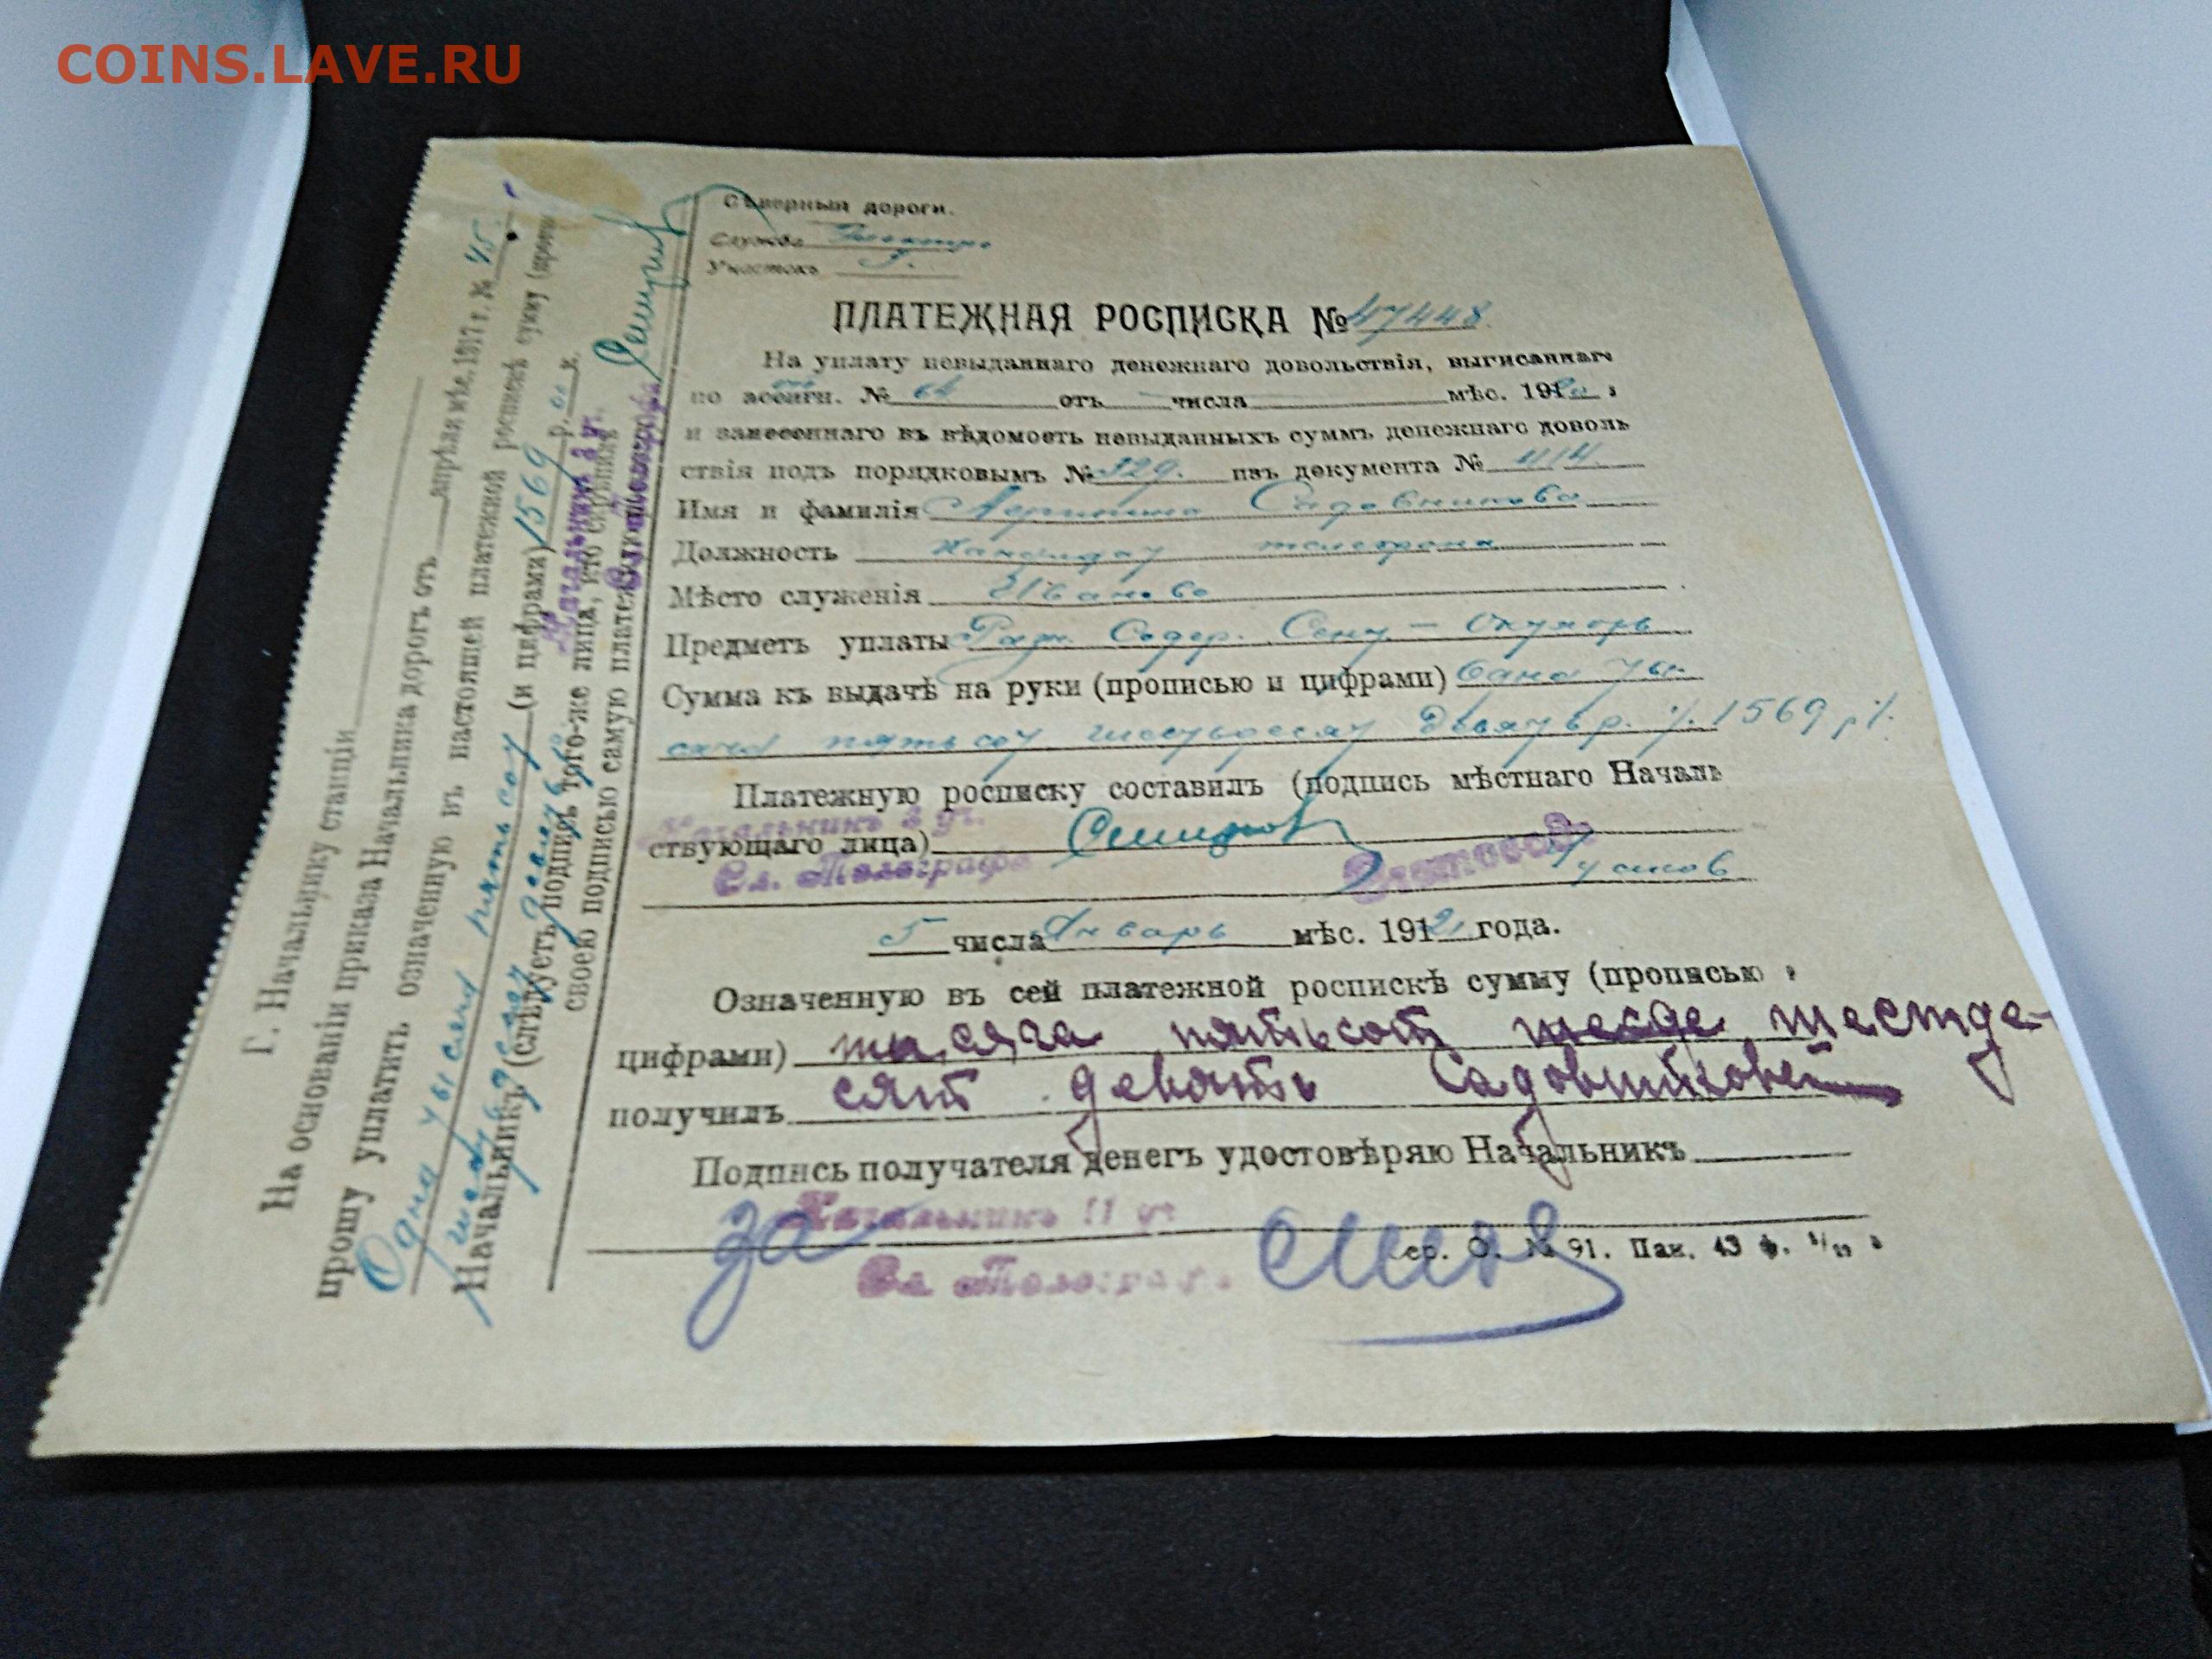 COINS.LAVE.RU
Сѣверныя дороги.
Служба
Участокъ
ПЛАТЕЖНАЯ РОСПИСКА № 47448
На уплату невыданнаго денежнаго довольствія, выписаннаг
по ассигн. № 64 отъ числа мѣс. 19
и занесеннаго въ вѣдомость невыданныхъ суммъ денежнаго доволь
ствія подъ порядковымъ № 329. изъ документа № 414
Имя и фамилія Садовникова
Должность телефона
Мѣсто служенія Иваново
Предметъ уплаты Разн. Содер. Сент - Октябрь
Сумма къ выдачѣ на руки (прописью и цифрами) Одна ты-
сяча пятьсот шестьдесят девять р. 1569 р
Платежную росписку составилъ (подпись мѣстнаго Началь
ствующаго лица)
Начальникъ
Сл. Телеграфа
5 числа Январь мѣс. 1912 года.
Означенную въ сей платежной роспискѣ сумму (прописью и
цифрами) тысяча пятьсот шестде-
получилъ сят девять Садовникова
Подпись получателя денегъ удостовѣряю Начальникъ
за Начальникъ 11
Сл Телеграфа
сер. О. № 91. Пак. 43 ф.
Г. Начальнику станціи
На основаніи приказа Начальника дорогъ отъ апрѣля мѣс. 1917 г. № 45
прошу уплатить означенную въ настоящей платежной роспискѣ сумму (пропи
Одна тысяча пятьсот (и цифрами) 1569 р. к.
шестьдесят девять
Начальникъ (слѣдуетъ подпись того-же лица, кто скрѣпилъ
своею подписью самую платежную